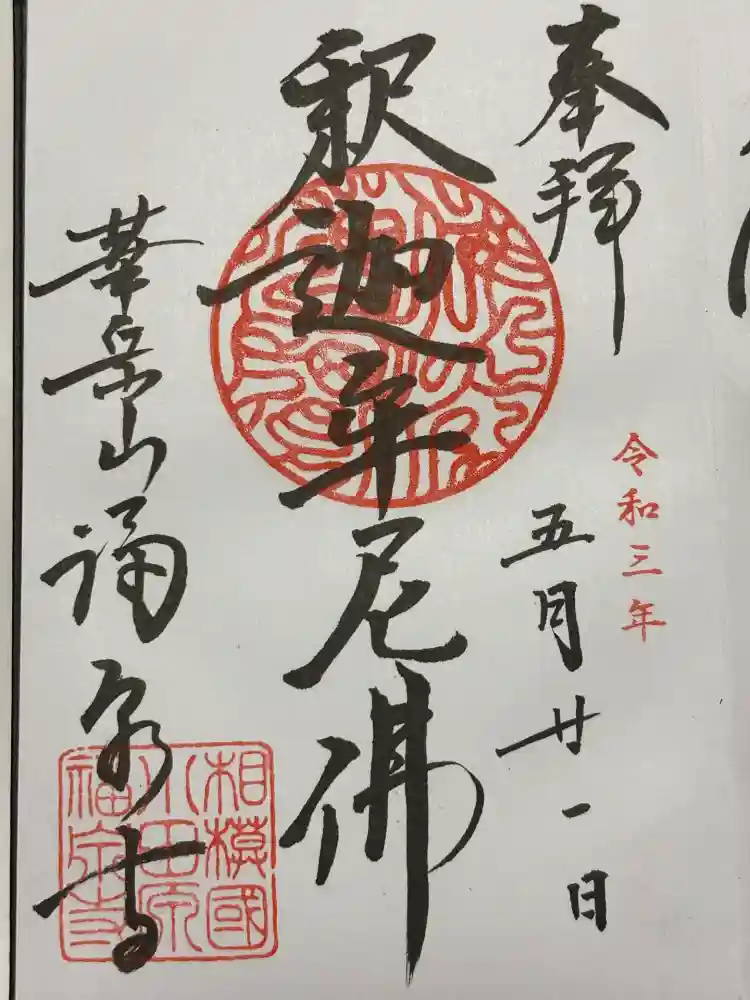 奉拝
令和三年
五月廿一日
釈迦牟尼佛
華岳山福泉寺
相模國
小田原
福泉寺